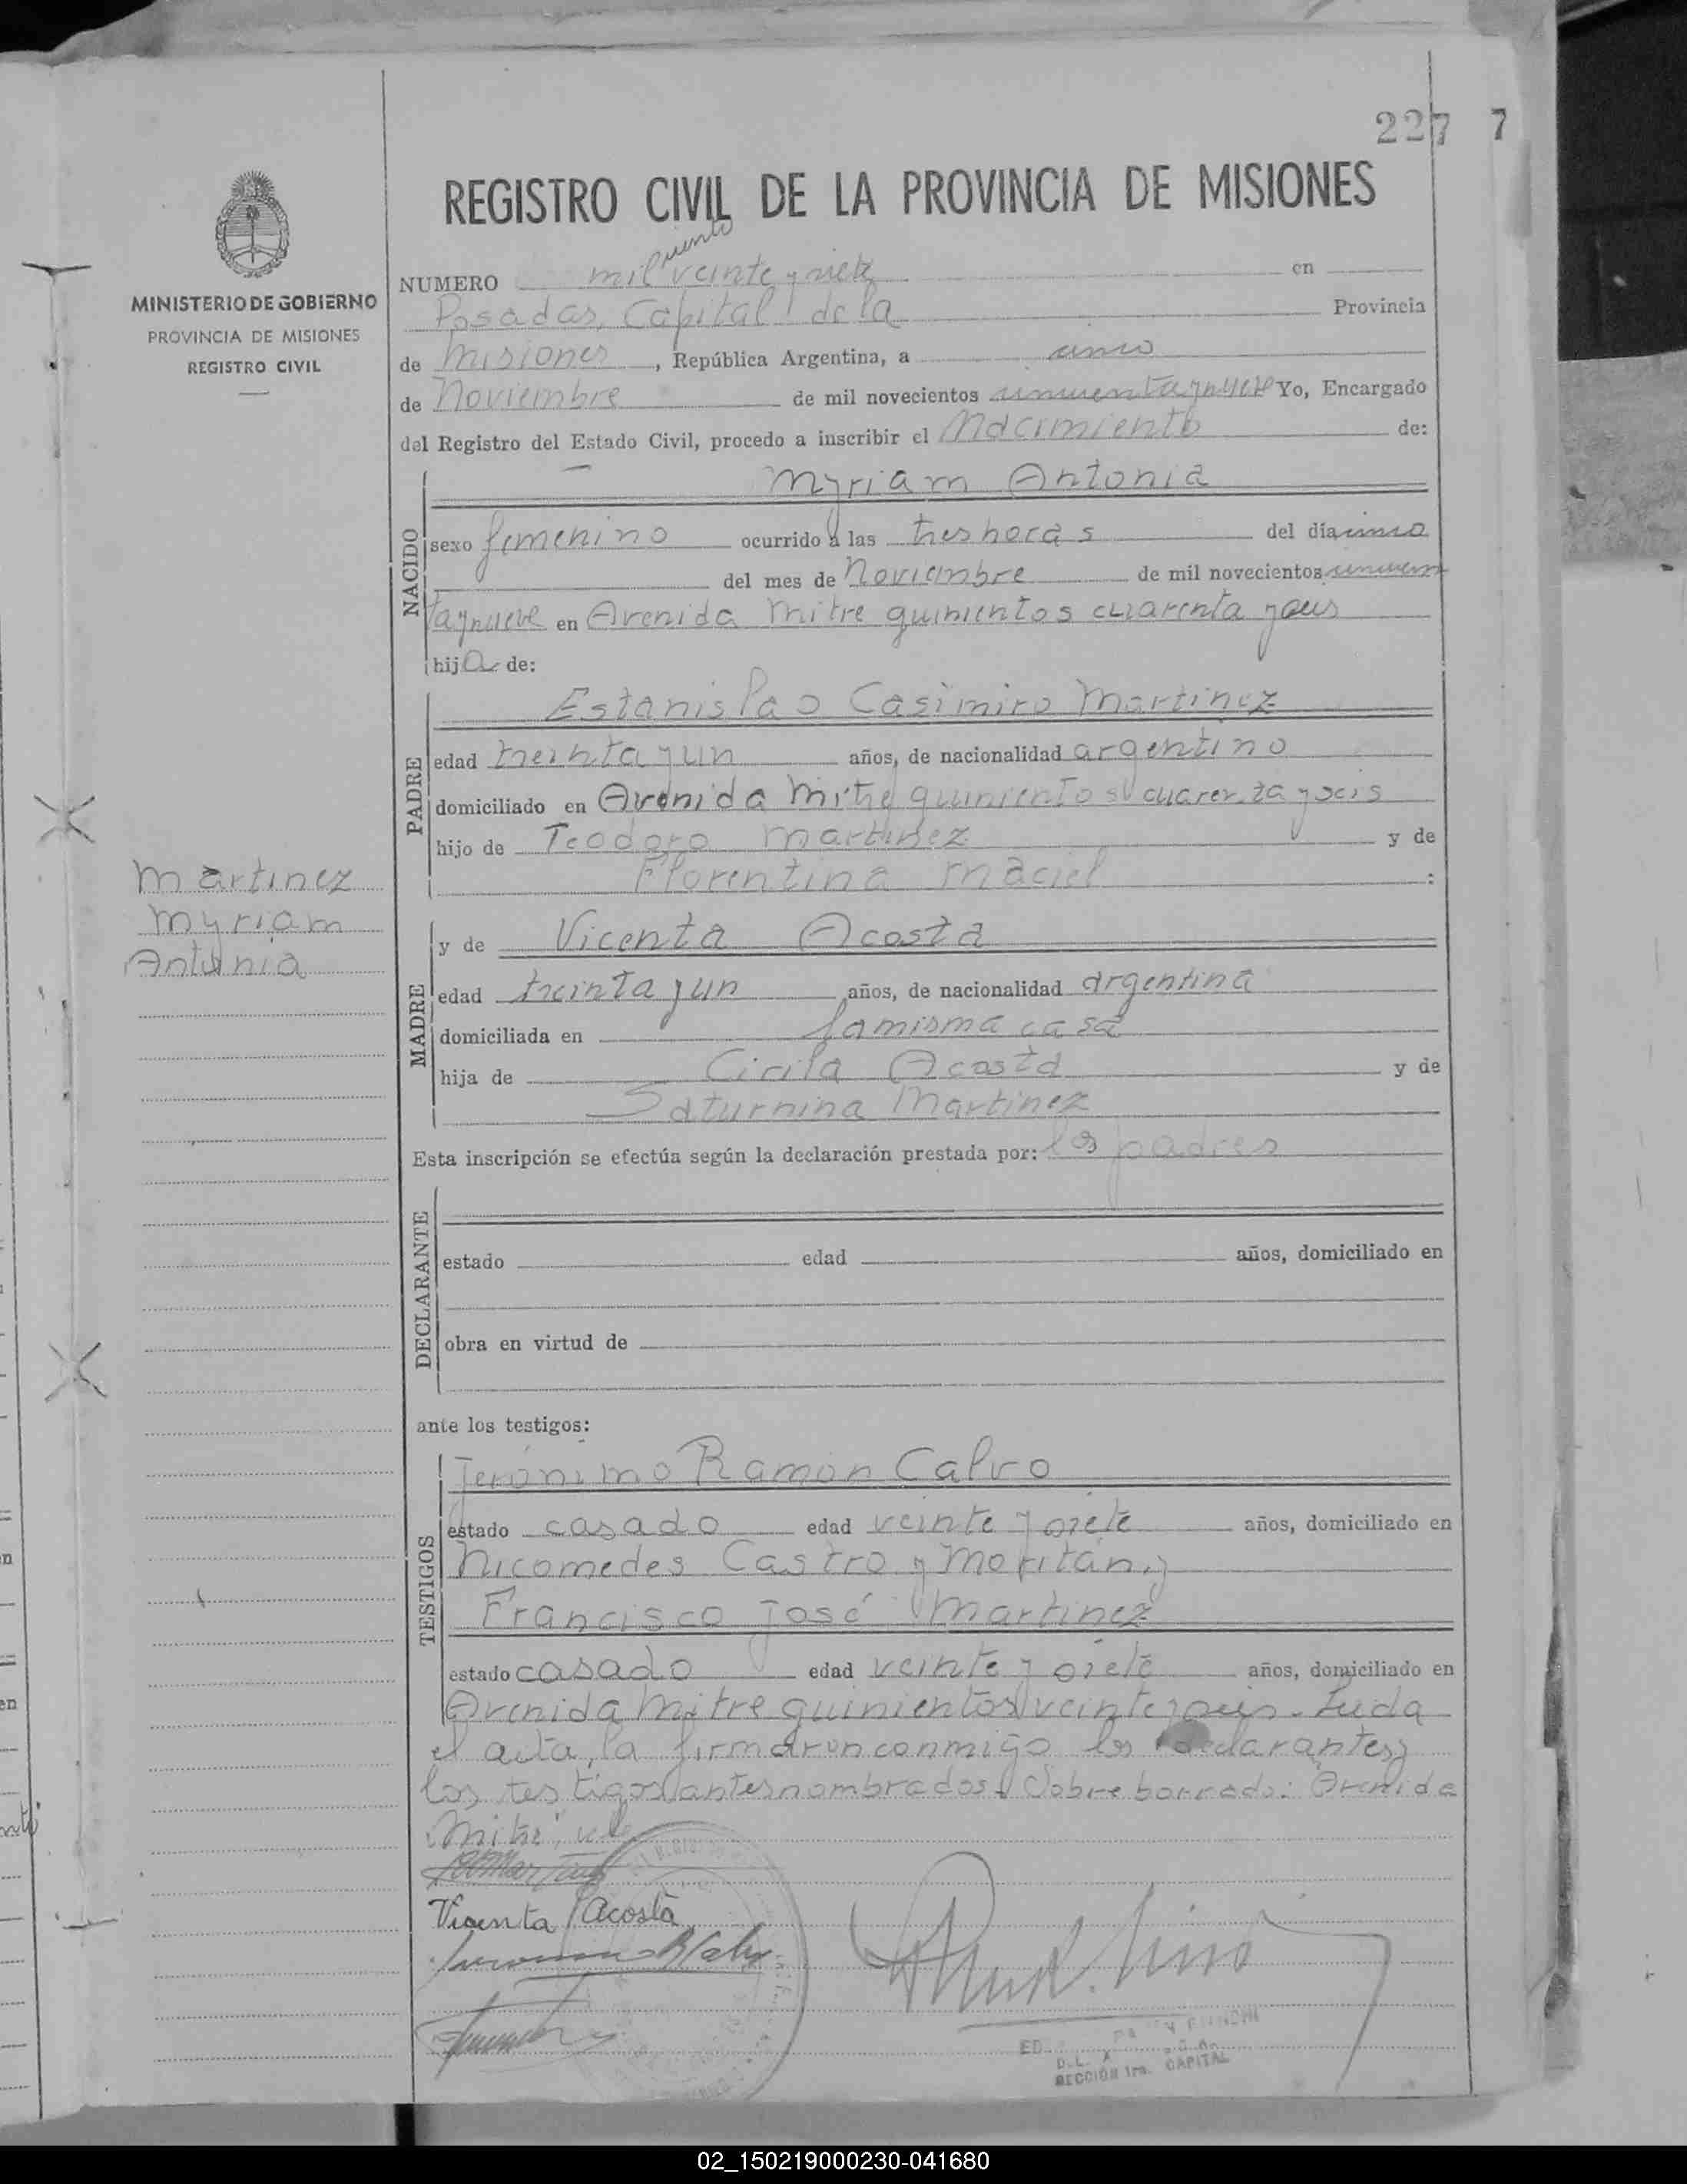 227 7
REGISTRO CIVIL DE LA PROVINCIA DE MISIONES
MINISTERIO DE GOBIERNO
PROVINCIA DE MISIONES
REGISTRO CIVIL
Martinez
Myriam
Antonia
ciento
NUMERO mil veinte y siete en
Posadas, Capital de la Provincia
de Misiones, República Argentina, a cinco
de Noviembre de mil novecientos cincuenta y nueve Yo, Encargado
del Registro del Estado Civil, procedo a inscribir el Nacimiento de:
NACIDO
Myriam Antonia
sexo femenino ocurrido a las tres horas del día cinco
del mes de Noviembre de mil novecientos cincuen
ta y nueve en Avenida Mitre quinientos cuarenta y seis
hija de:
PADRE
Estanislao Casimiro Martinez
edad treinta y un años, de nacionalidad argentino
domiciliado en Avenida Mitre quinientos cuarenta y seis
hijo de Teodoro Martinez y de
Florentina Maciel :
MADRE
y de Vicenta Acosta
edad treinta y un años, de nacionalidad argentina
domiciliada en la misma casa
hija de Cirila Acosta y de
Saturnina Martinez
Esta inscripción se efectúa según la declaración prestada por: los padres
DECLARANTE
estado edad años, domiciliado en
obra en virtud de
ante los testigos:
TESTIGOS
Jerónimo Ramon Calvo
estado casado edad veinte y siete años, domiciliado en
Nicomedes Castro y Moritán, y
Francisco José Martinez
estado casado edad veinte y siete años, domiciliado en
Avenida Mitre quinientos veinte y seis. Leida
el acta, la firmaron conmigo los declarantes y
los testigos antes nombrados. Sobre borrado: Avenida
Mitre; vale
Vicenta Acosta
SECCIÓN 1ra. CAPITAL
02_150219000230-041680